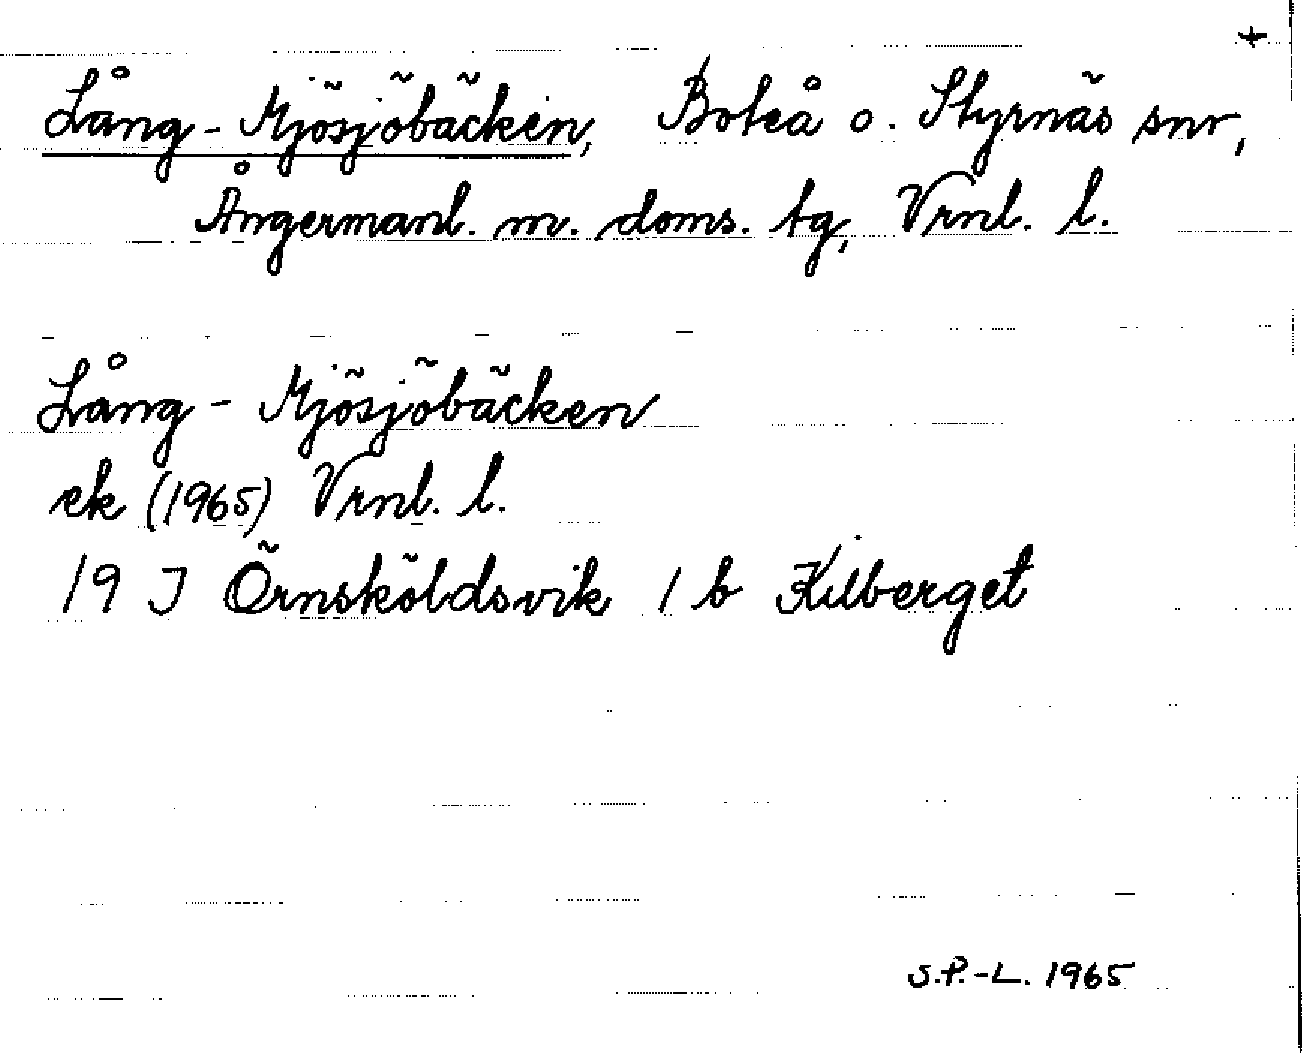 +
Lång-Mjösjöbäcken, Boteå o. Styrnäs snr,
Ångermanl. m. doms. tg, Vrnl. l.
Lång-Mjösjöbäcken
ek (1965) Vrnl. l.
19 J Örnsköldsvik 1 b Kilberget
S.P.-L. 1965